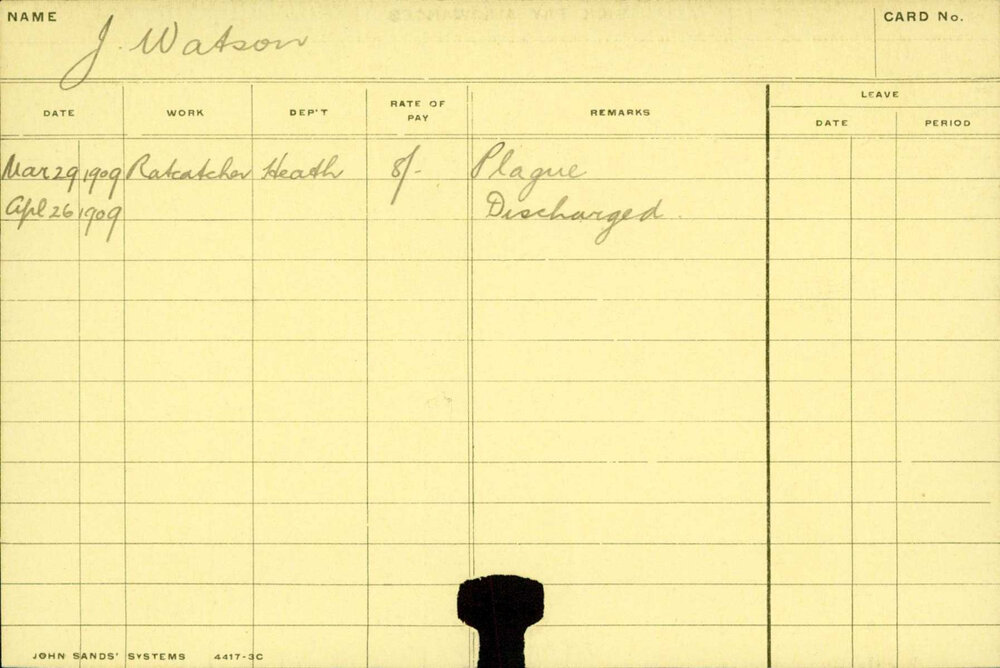 NAME J. Watson CARD No.
DATE WORK DEP'T RATE OF PAY REMARKS LEAVE
DATE PERIOD
Mar 29 1909 Ratcatcher Heath 8/- Plague
Apl 26 1909 Discharged.
JOHN SANDS' SYSTEMS 4417-3C